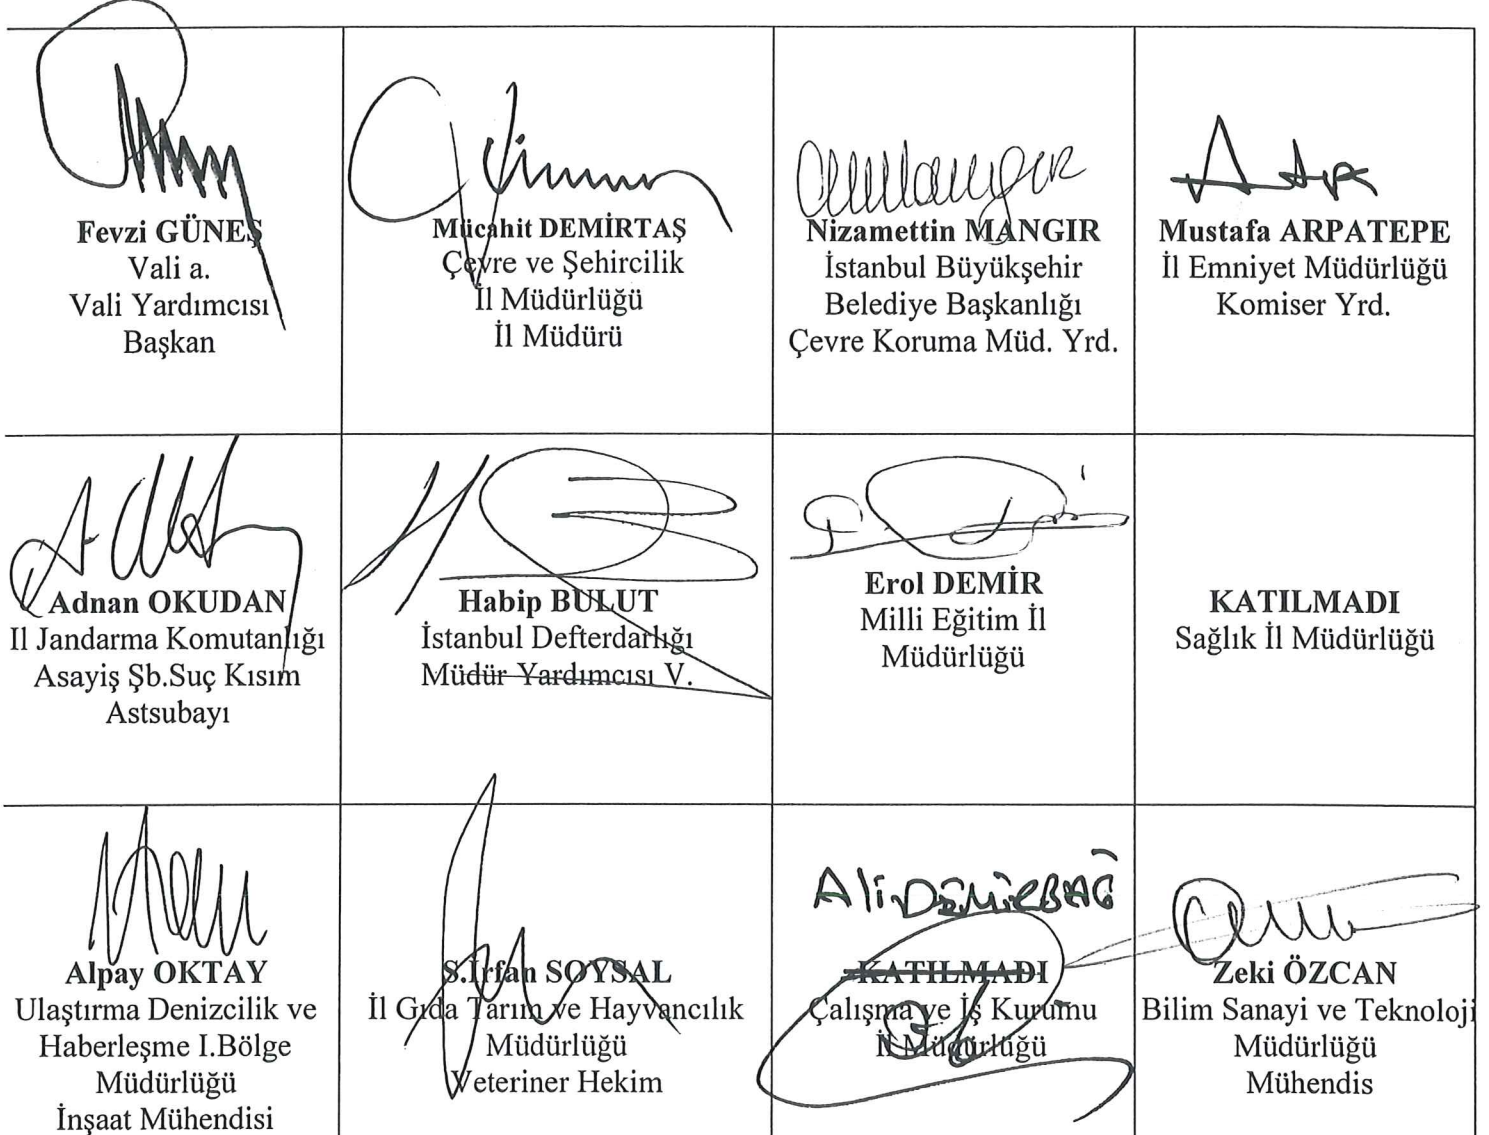 Fevzi GÜNEŞ
Vali a.
Vali Yardımcısı
Başkan
Mücahit DEMİRTAŞ
Çevre ve Şehircilik
İl Müdürlüğü
İl Müdürü
Nizamettin MANGIR
İstanbul Büyükşehir
Belediye Başkanlığı
Çevre Koruma Müd. Yrd.
Mustafa ARPATEPE
İl Emniyet Müdürlüğü
Komiser Yrd.
Adnan OKUDAN
Il Jandarma Komutanlığı
Asayiş Şb.Suç Kısım
Astsubayı
Habip BULUT
İstanbul Defterdarlığı
Müdür Yardımcısı V.
Erol DEMİR
Milli Eğitim İl
Müdürlüğü
KATILMADI
Sağlık İl Müdürlüğü
Alpay OKTAY
Ulaştırma Denizcilik ve
Haberleşme I.Bölge
Müdürlüğü
İnşaat Mühendisi
S.İrfan SOYSAL
İl Gıda Tarım ve Hayvancılık
Müdürlüğü
Veteriner Hekim
Ali DEMİRBAĞ
KATILMADI
Çalışma ve İş Kurumu
İl Müdürlüğü
Zeki ÖZCAN
Bilim Sanayi ve Teknoloji
Müdürlüğü
Mühendis